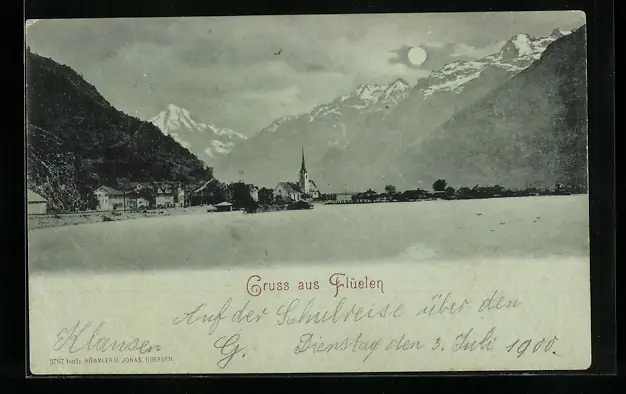 Gruss aus Flüelen
Auf der Schulreise über den
Klausen
G. Dienstag den 3. Juli 1900.
3787 RÖMMLER & JONAS, DRESDEN.